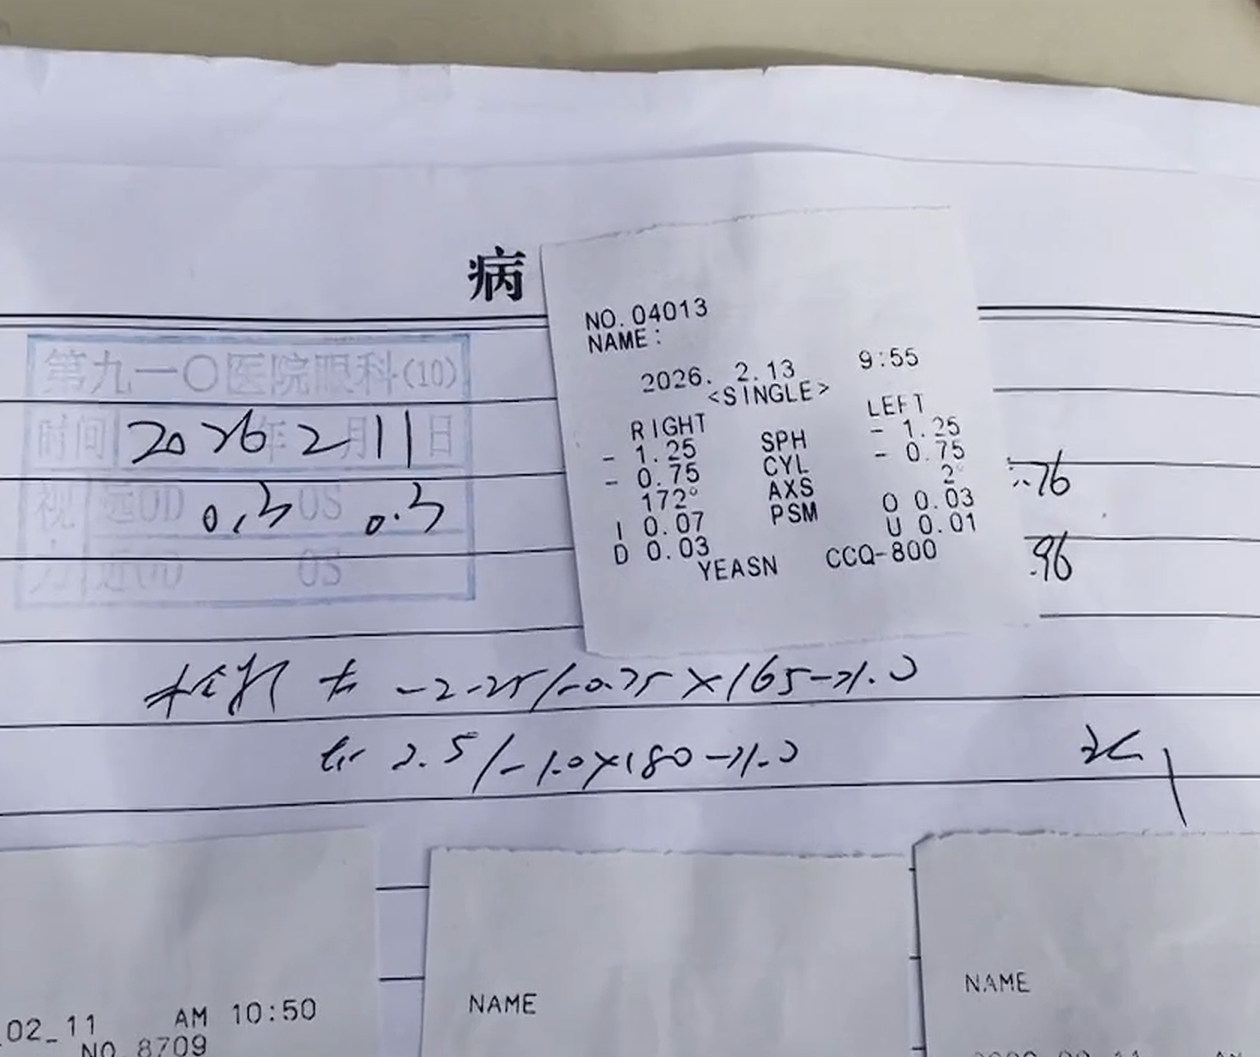 病
第九一〇医院眼科(10)
时间 2026年2月11日
视 远OD 0.3 OS 0.3
力 近OD OS
NO.04013
NAME:
2026. 2.13 9:55
<SINGLE>
RIGHT LEFT
- 1.25 SPH - 1.25
- 0.75 CYL - 0.75
172° AXS 2°
I 0.07 PSM O 0.03
D 0.03 U 0.01
YEASN CCQ-800
76
96
右 -2.25/-0.75×165→1.0
2.5/-1.0×180→1.0
02_11 AM 10:50
NO 8709
NAME
NAME